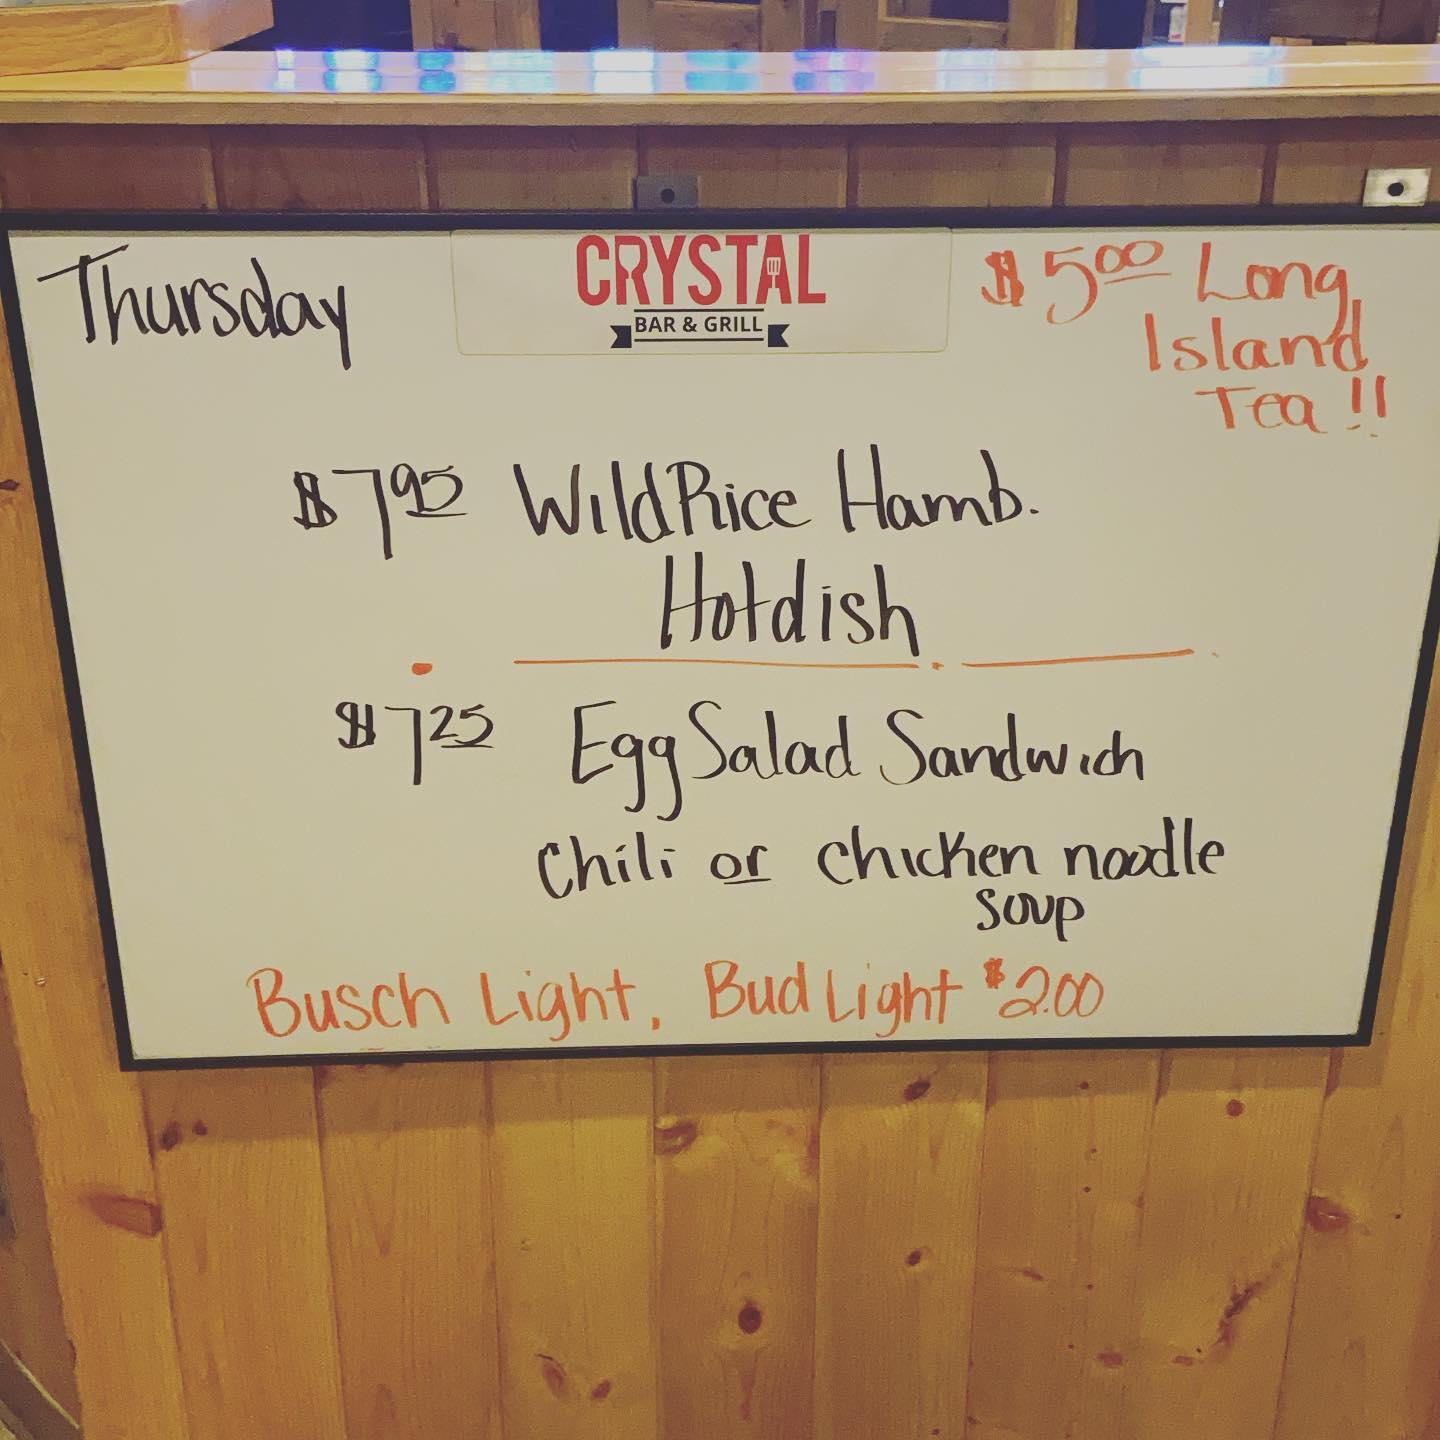 Thursday
CRYSTAL
BAR & GRILL
$5.00 Long
Island
Tea!!
$7.95 Wild Rice Hamb.
Hotdish
$7.25 Egg Salad Sandwich
Chili or chicken noodle
soup
Busch Light, Bud Light $2.00